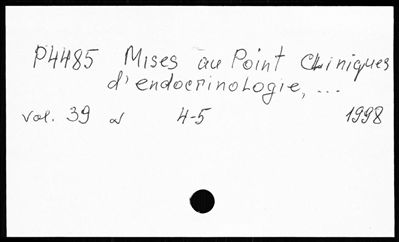 P4485 Mises au Point Cliniques
d'endocrinologie, ...
vol. 39 N 4-5 1998